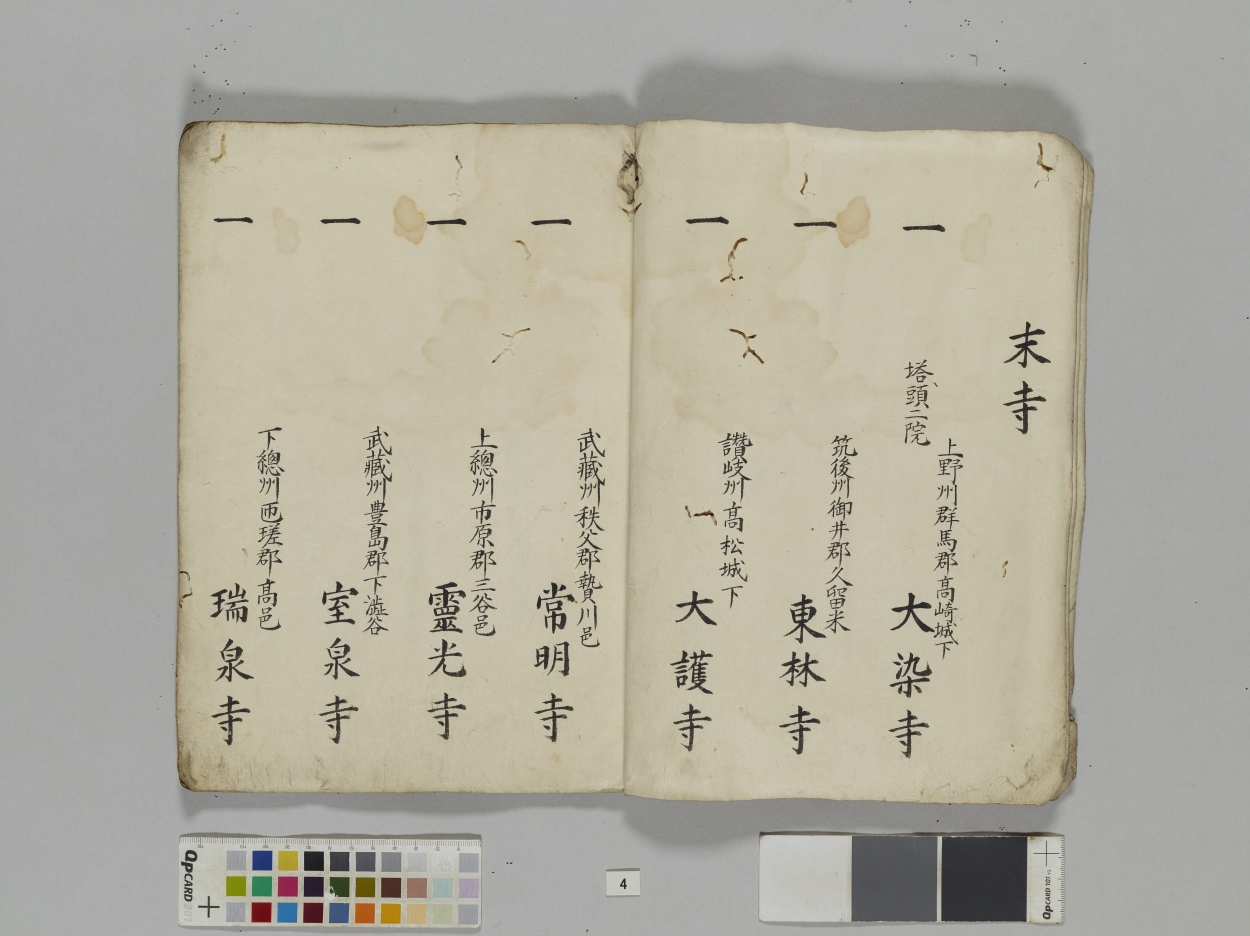 末寺
上野州群馬郡高崎城下
一 塔頭二院 大染寺
筑後州御井郡久留米
一 東林寺
讃岐州高松城下
一 大護寺
武藏州秩父郡贄川邑
一 常明寺
上總州市原郡三谷邑
一 靈光寺
武藏州豊島郡下澁谷
一 室泉寺
下總州匝瑳郡高邑
一 瑞泉寺
QPCARD 201
4
QPCARD 101